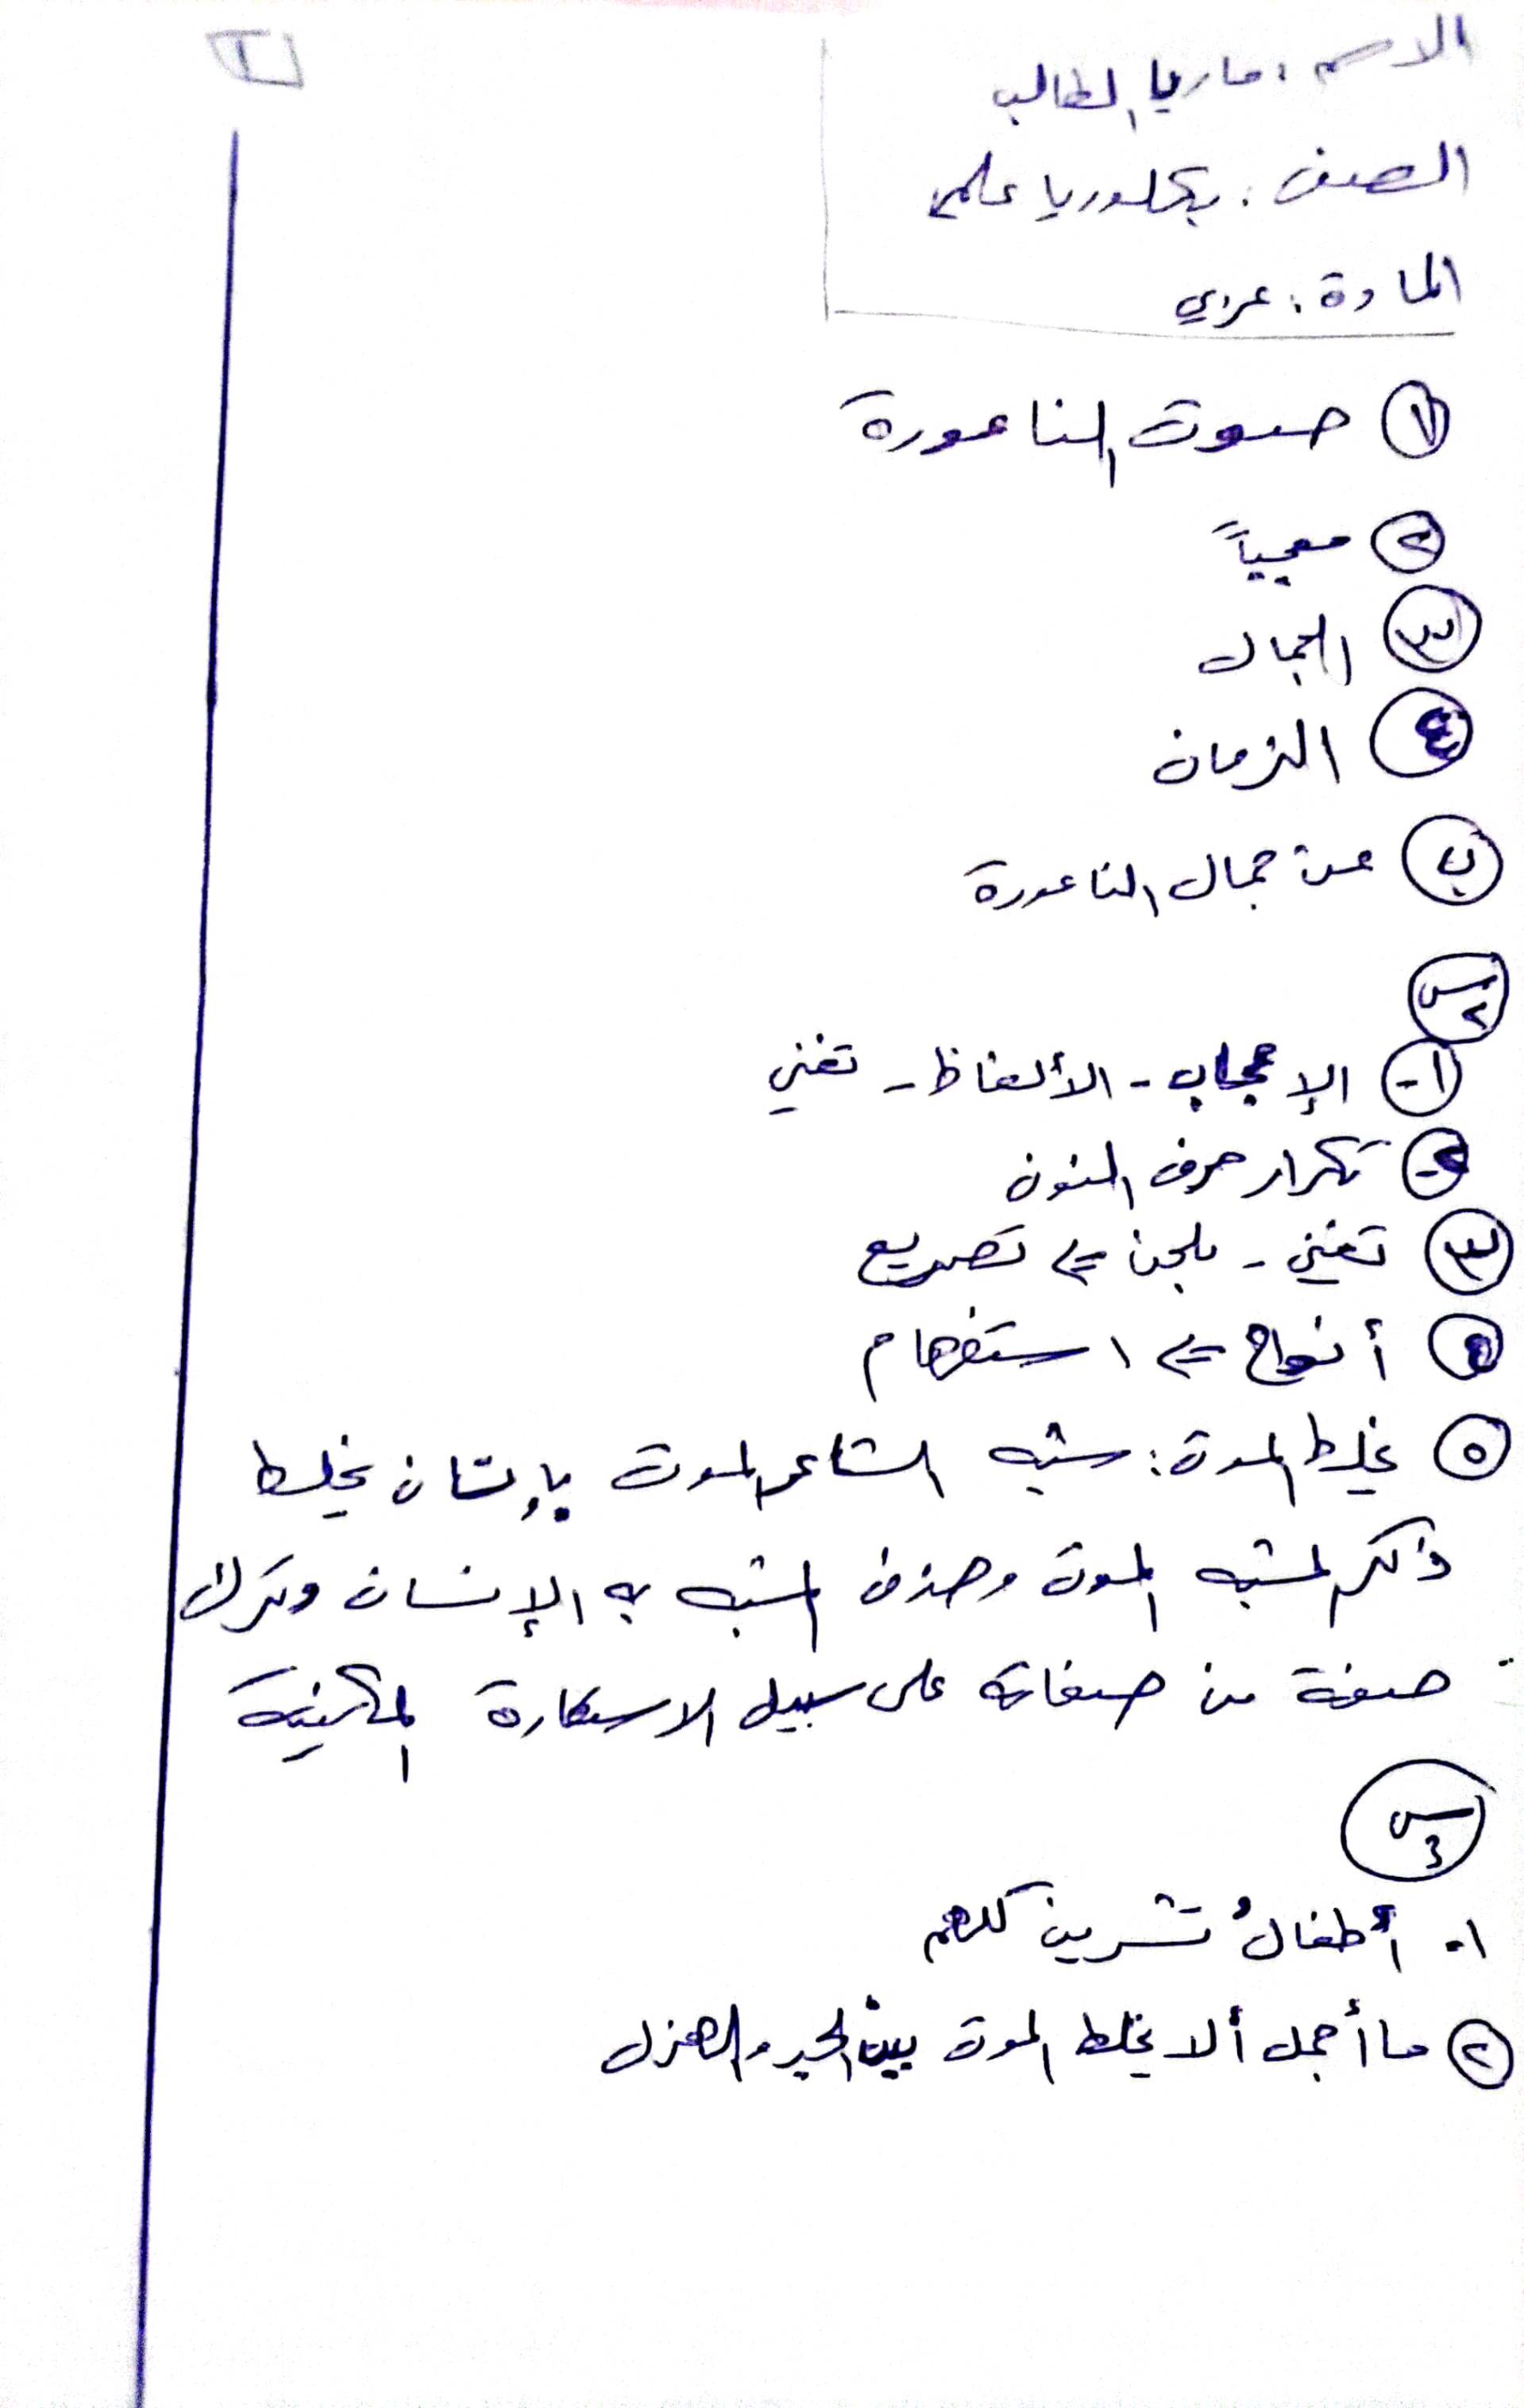 ١
الاسم : ماريا الطالب
الصف : بكلوريا علمي
المادة : عربي
١ صوت الناعورة
٢ معجباً
٣ الجمال
٤ الزمان
ب عن جمال الناعورة
س٢
١- الإعجاب - الألفاظ - تغني
٢- تكرار حرف النون
٣ تغني - بلحن => تصريع
٤ أنواح => استفهام
٥ يخلط الموت : شبه الشاعر الموت بإنسان يخلط
ذكر المشبه الموت وحذف المشبه به الإنسان وترك
صفة من صفاته على سبيل الاستعارة المكنية
س٣
١- أطفالُ تشرين كلهم
٢ ما أجمل ألا يخلط الموت بين الجد والهزل